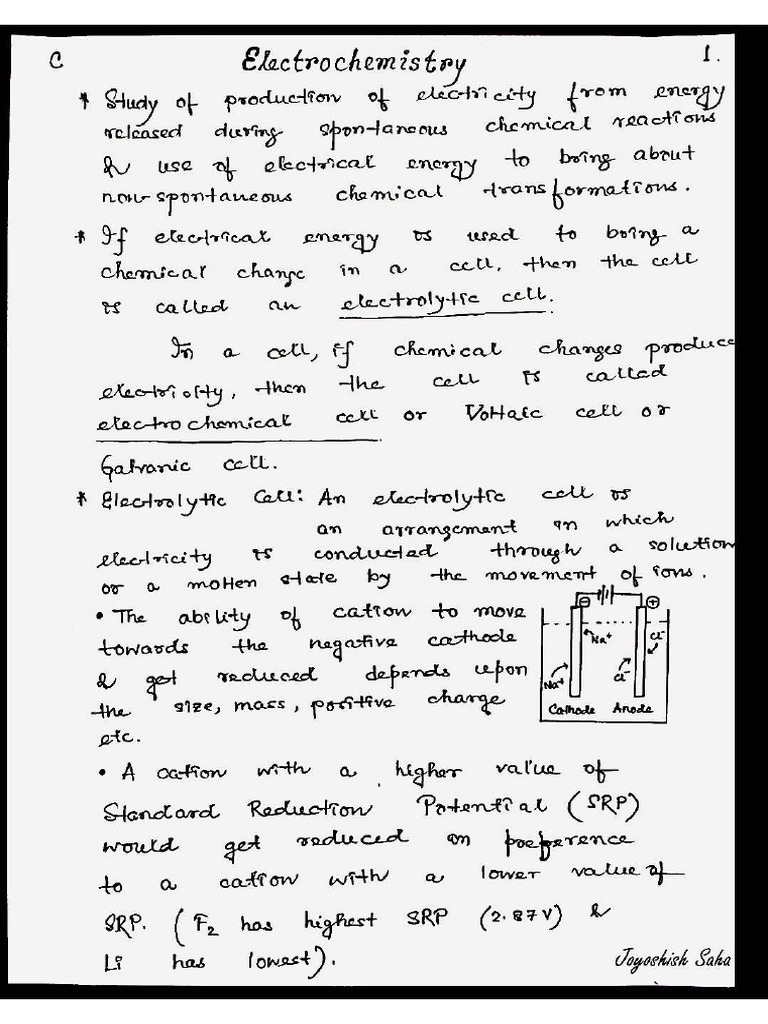 C Electrochemistry 1.
* Study of production of electricity from energy
released during spontaneous chemical reactions
& use of electrical energy to bring about
non-spontaneous chemical transformations.
* If electrical energy is used to bring a
chemical change in a cell, then the cell
is called an electrolytic cell.
In a cell, if chemical changes produce
electricity, then the cell is called
electrochemical cell or Voltaic cell or
Galvanic cell.
* Electrolytic Cell: An electrolytic cell is
an arrangement in which
electricity is conducted through a solution
or a molten state by the movement of ions.
• The ability of cation to move
towards the negative cathode
& get reduced depends upon
the size, mass, positive charge
etc.
⊖ ⊕
Na+ Cl-
Na+ Cl-
Cathode Anode
• A cation with a higher value of
Standard Reduction Potential (SRP)
would get reduced in preference
to a cation with a lower value of
SRP. (F2 has highest SRP (2.87V) &
Li has lowest).
Joyoshish Saha